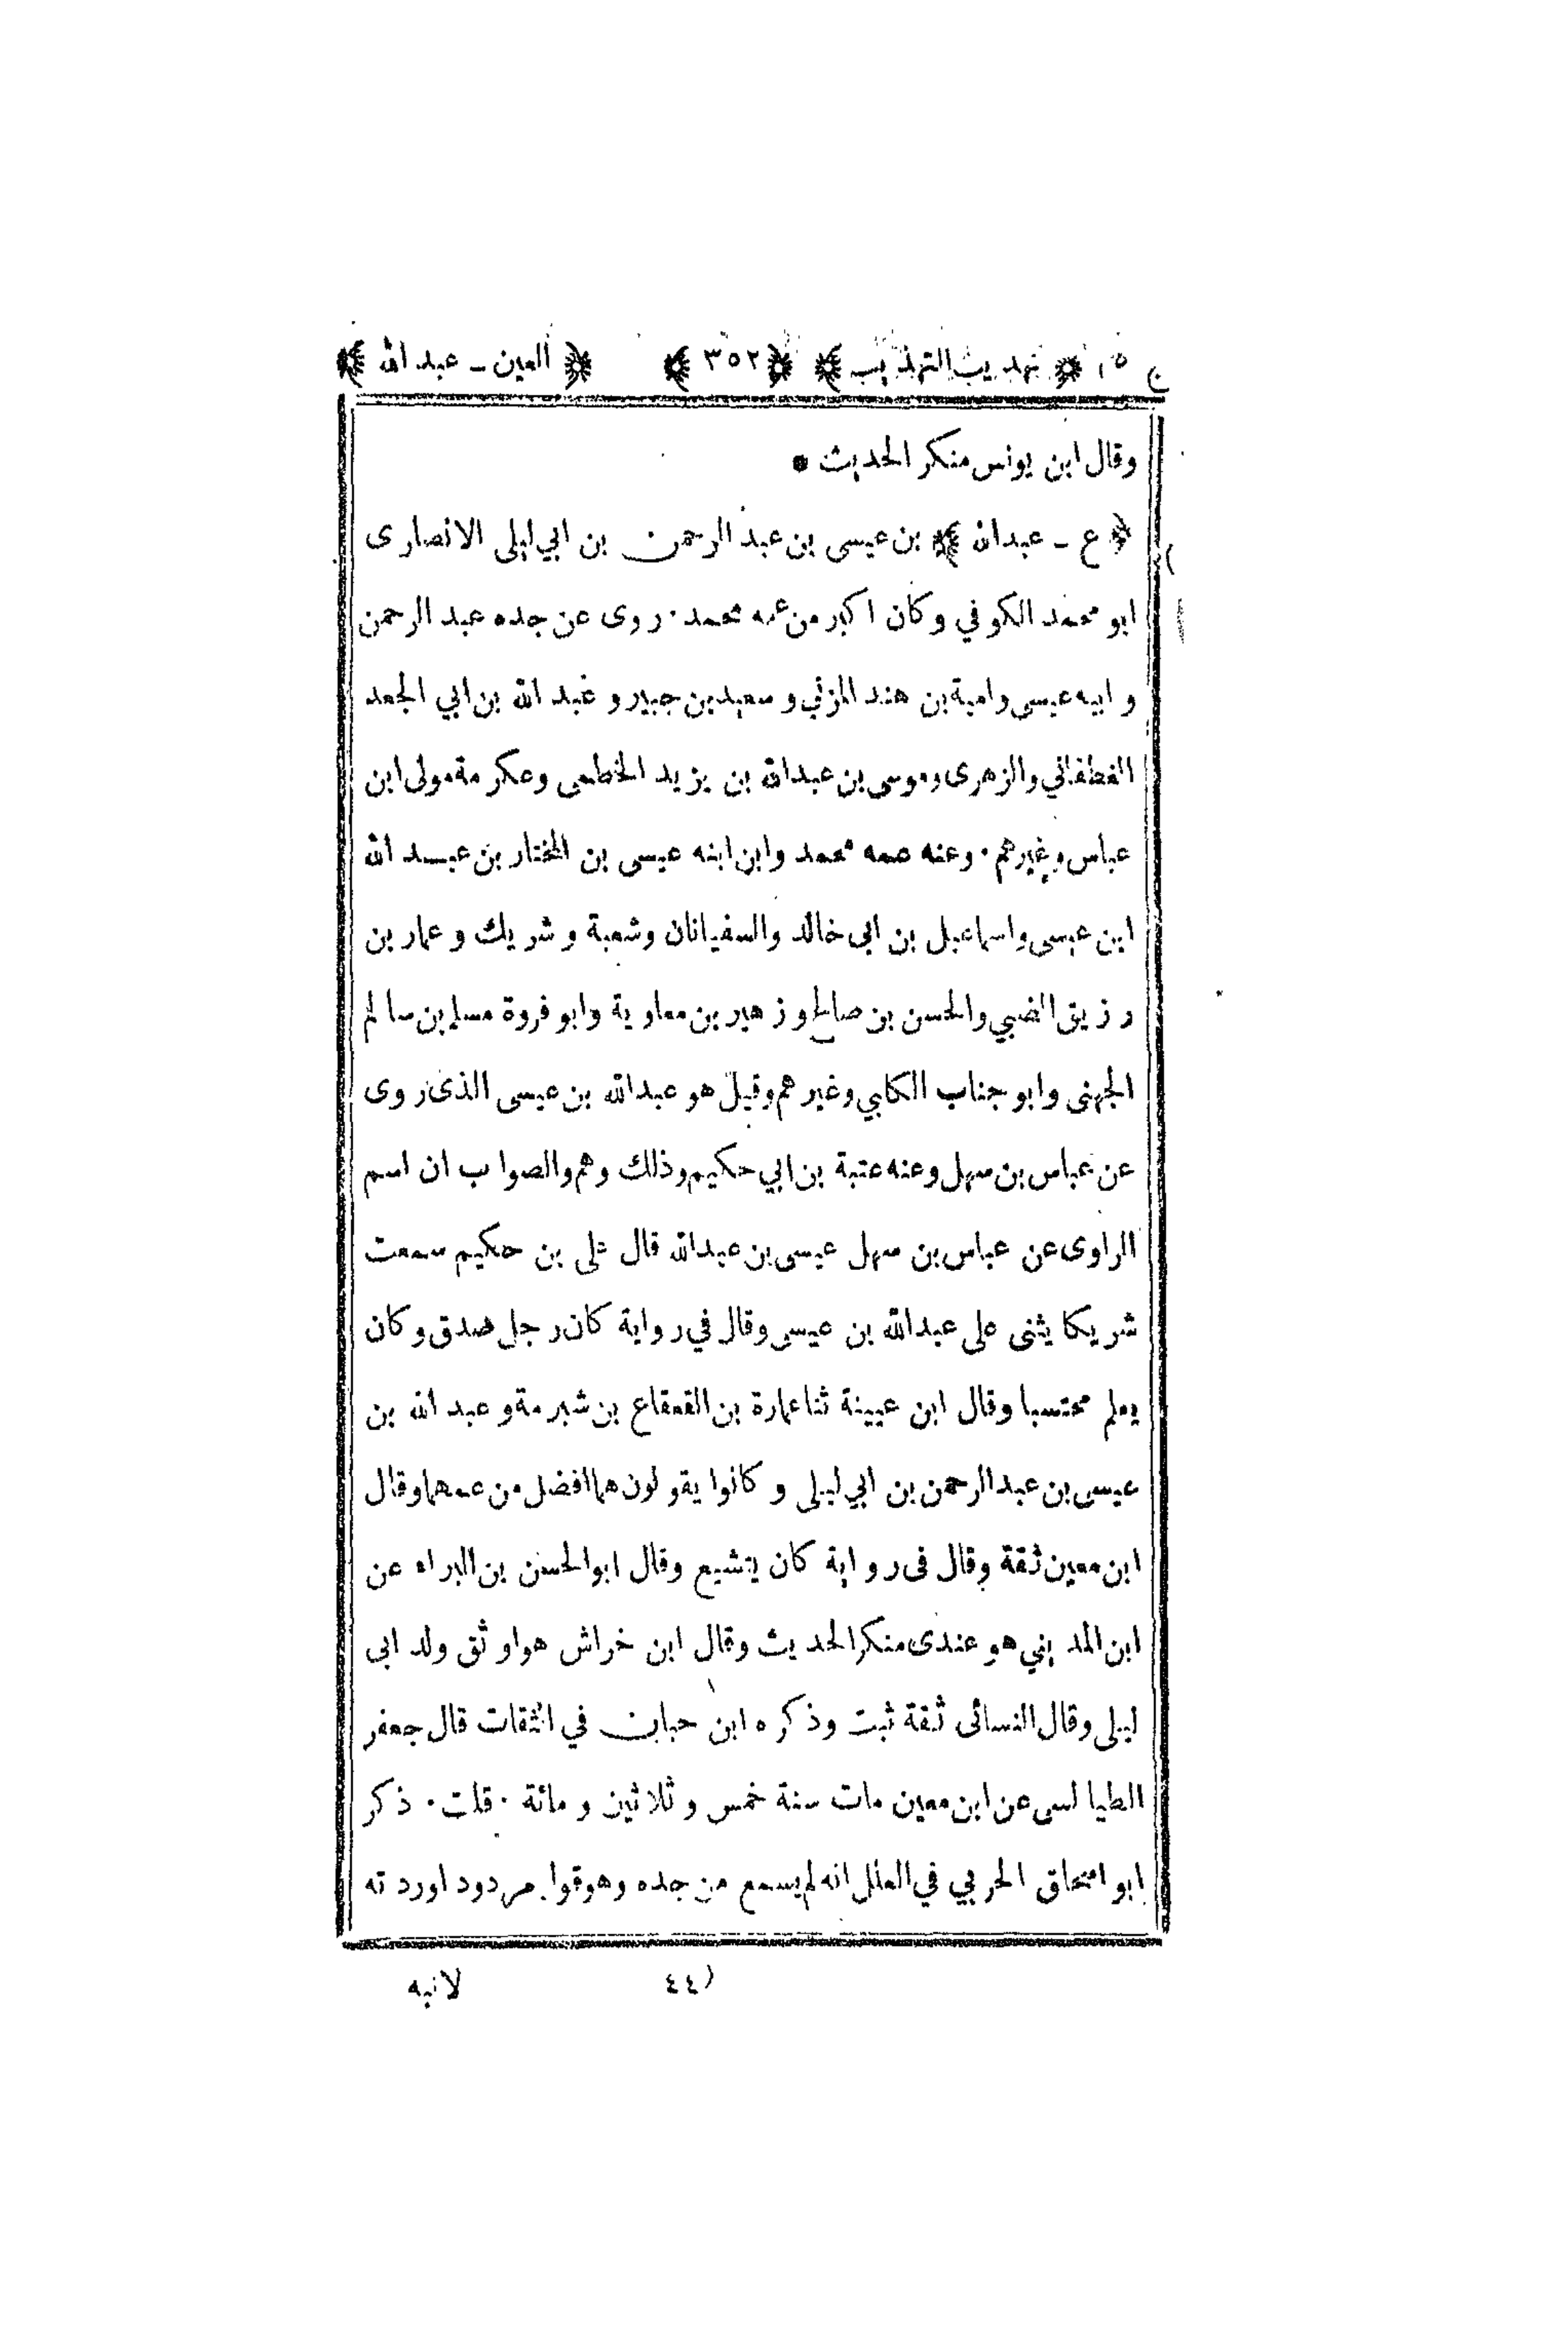 ج ٥ ﴿ تهذيب التهذيب ﴾ ﴿ ٣٥٢ ﴾ ﴿ العين ـ عبد الله ﴾
وقال ابن يونس منكر الحديث ●
﴿ ع ـ عبدالله ﴾ بن عيسى بن عبد الرحمن بن ابي ليلى الانصارى
ابو محمد الكوفي وكان اكبر من عمه محمد٠ روى عن جده عبد الرحمن
و ابيه عيسى وامية بن هند المزني و سعيد بن جبير و عبد الله بن ابي الجعد
الغطفاني والزهرى وموسى بن عبدالله بن يزيد الخطمى وعكرمة مولى ابن
عباس وغيرهم ٠ وعنه عمه محمد وابن ابنه عيسى بن المختار بن عبد الله
ابن عيسى واسماعيل بن ابى خالد والسفيانان وشعبة و شريك و عمار بن
رزيق الضبي والحسن بن صالح و زهير بن معاوية وابو فروة مسلم بن سالم
الجهنى وابو جناب الكلبي وغيرهم وقيل هو عبدالله بن عيسى الذى روى
عن عباس بن سهل وعنه عتبة بن ابي حكيم وذلك وهم والصواب ان اسم
الراوى عن عباس بن سهل عيسى بن عبدالله قال على بن حكيم سمعت
شريكا يثنى على عبدالله بن عيسى وقال في رواية كان رجل صدق وكان
يعلم محتسبا وقال ابن عيينة ثنا عمارة بن القعقاع بن شبرمة و عبد الله بن
عيسى بن عبدالرحمن بن ابي ليلى و كانوا يقولون هما افضل من عمهما وقال
ابن معين ثقة وقال فى رواية كان يتشيع وقال ابوالحسن بن البراء عن
ابن المديني هو عندى منكر الحديث وقال ابن خراش هو اوثق ولد ابى
ليلى وقال النسائى ثقة ثبت وذكره ابن حبان في الثقات قال جعفر
الطيالسى عن ابن معين مات سنة خمس و ثلاثين و مائة ٠ قلت ٠ ذكر
ابو اسحاق الحربي في العلل انه لم يسمع من جده وهو قول مردود اوردته
(٤٤ لانيه